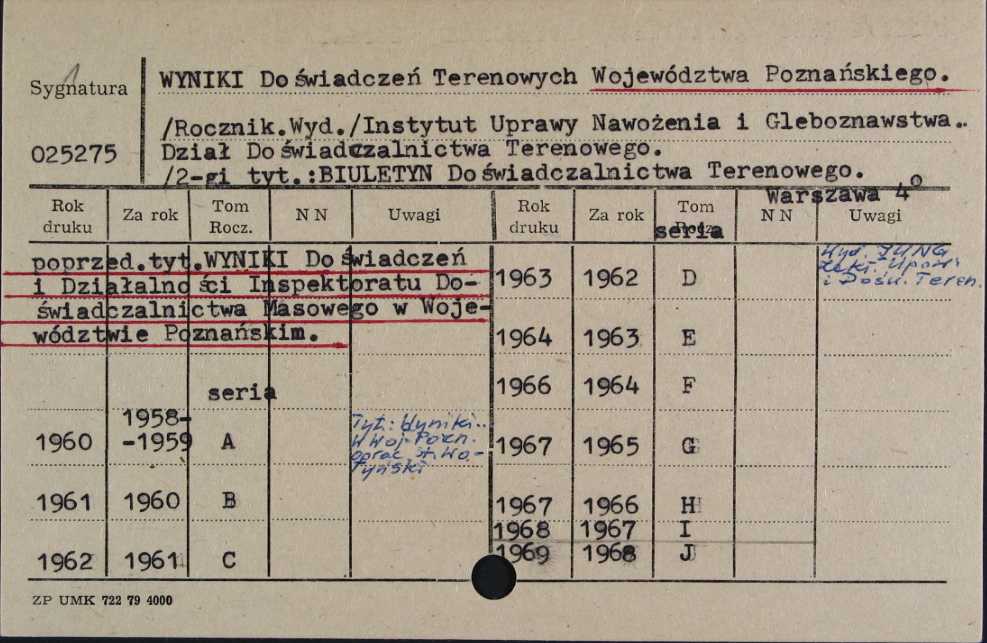 Sygnatura
025275
WYNIKI Doświadczeń Terenowych Województwa Poznańskiego.
/Rocznik.Wyd./Instytut Uprawy Nawożenia i Gleboznawstwa..
Dział Doświadczalnictwa Terenowego.
/2-gi tyt.:BIULETYN Doświadczalnictwa Terenowego.
Warszawa 4°
Rok druku Za rok Tom Rocz. N N Uwagi
poprzed.tyt.WYNIKI Doświadczeń
i Działalności Inspektoratu Do-
świadczalnictwa Masowego w Woje-
wództwie Poznańskim.
seria
1960 1958--1959 A Tyt.: Wyniki..
w Woj. Pozn.
oprac. St. Wo-
łyński
1961 1960 B
1962 1961 C
Rok druku Za rok Tom Rocz. N N Uwagi
seria
1963 1962 D Wyd. IUNG
i Dośw. Teren.
1964 1963 E
1966 1964 F
1967 1965 G
1967 1966 H
1968 1967 I
1969 1968 J
ZP UMK 722 79 4000